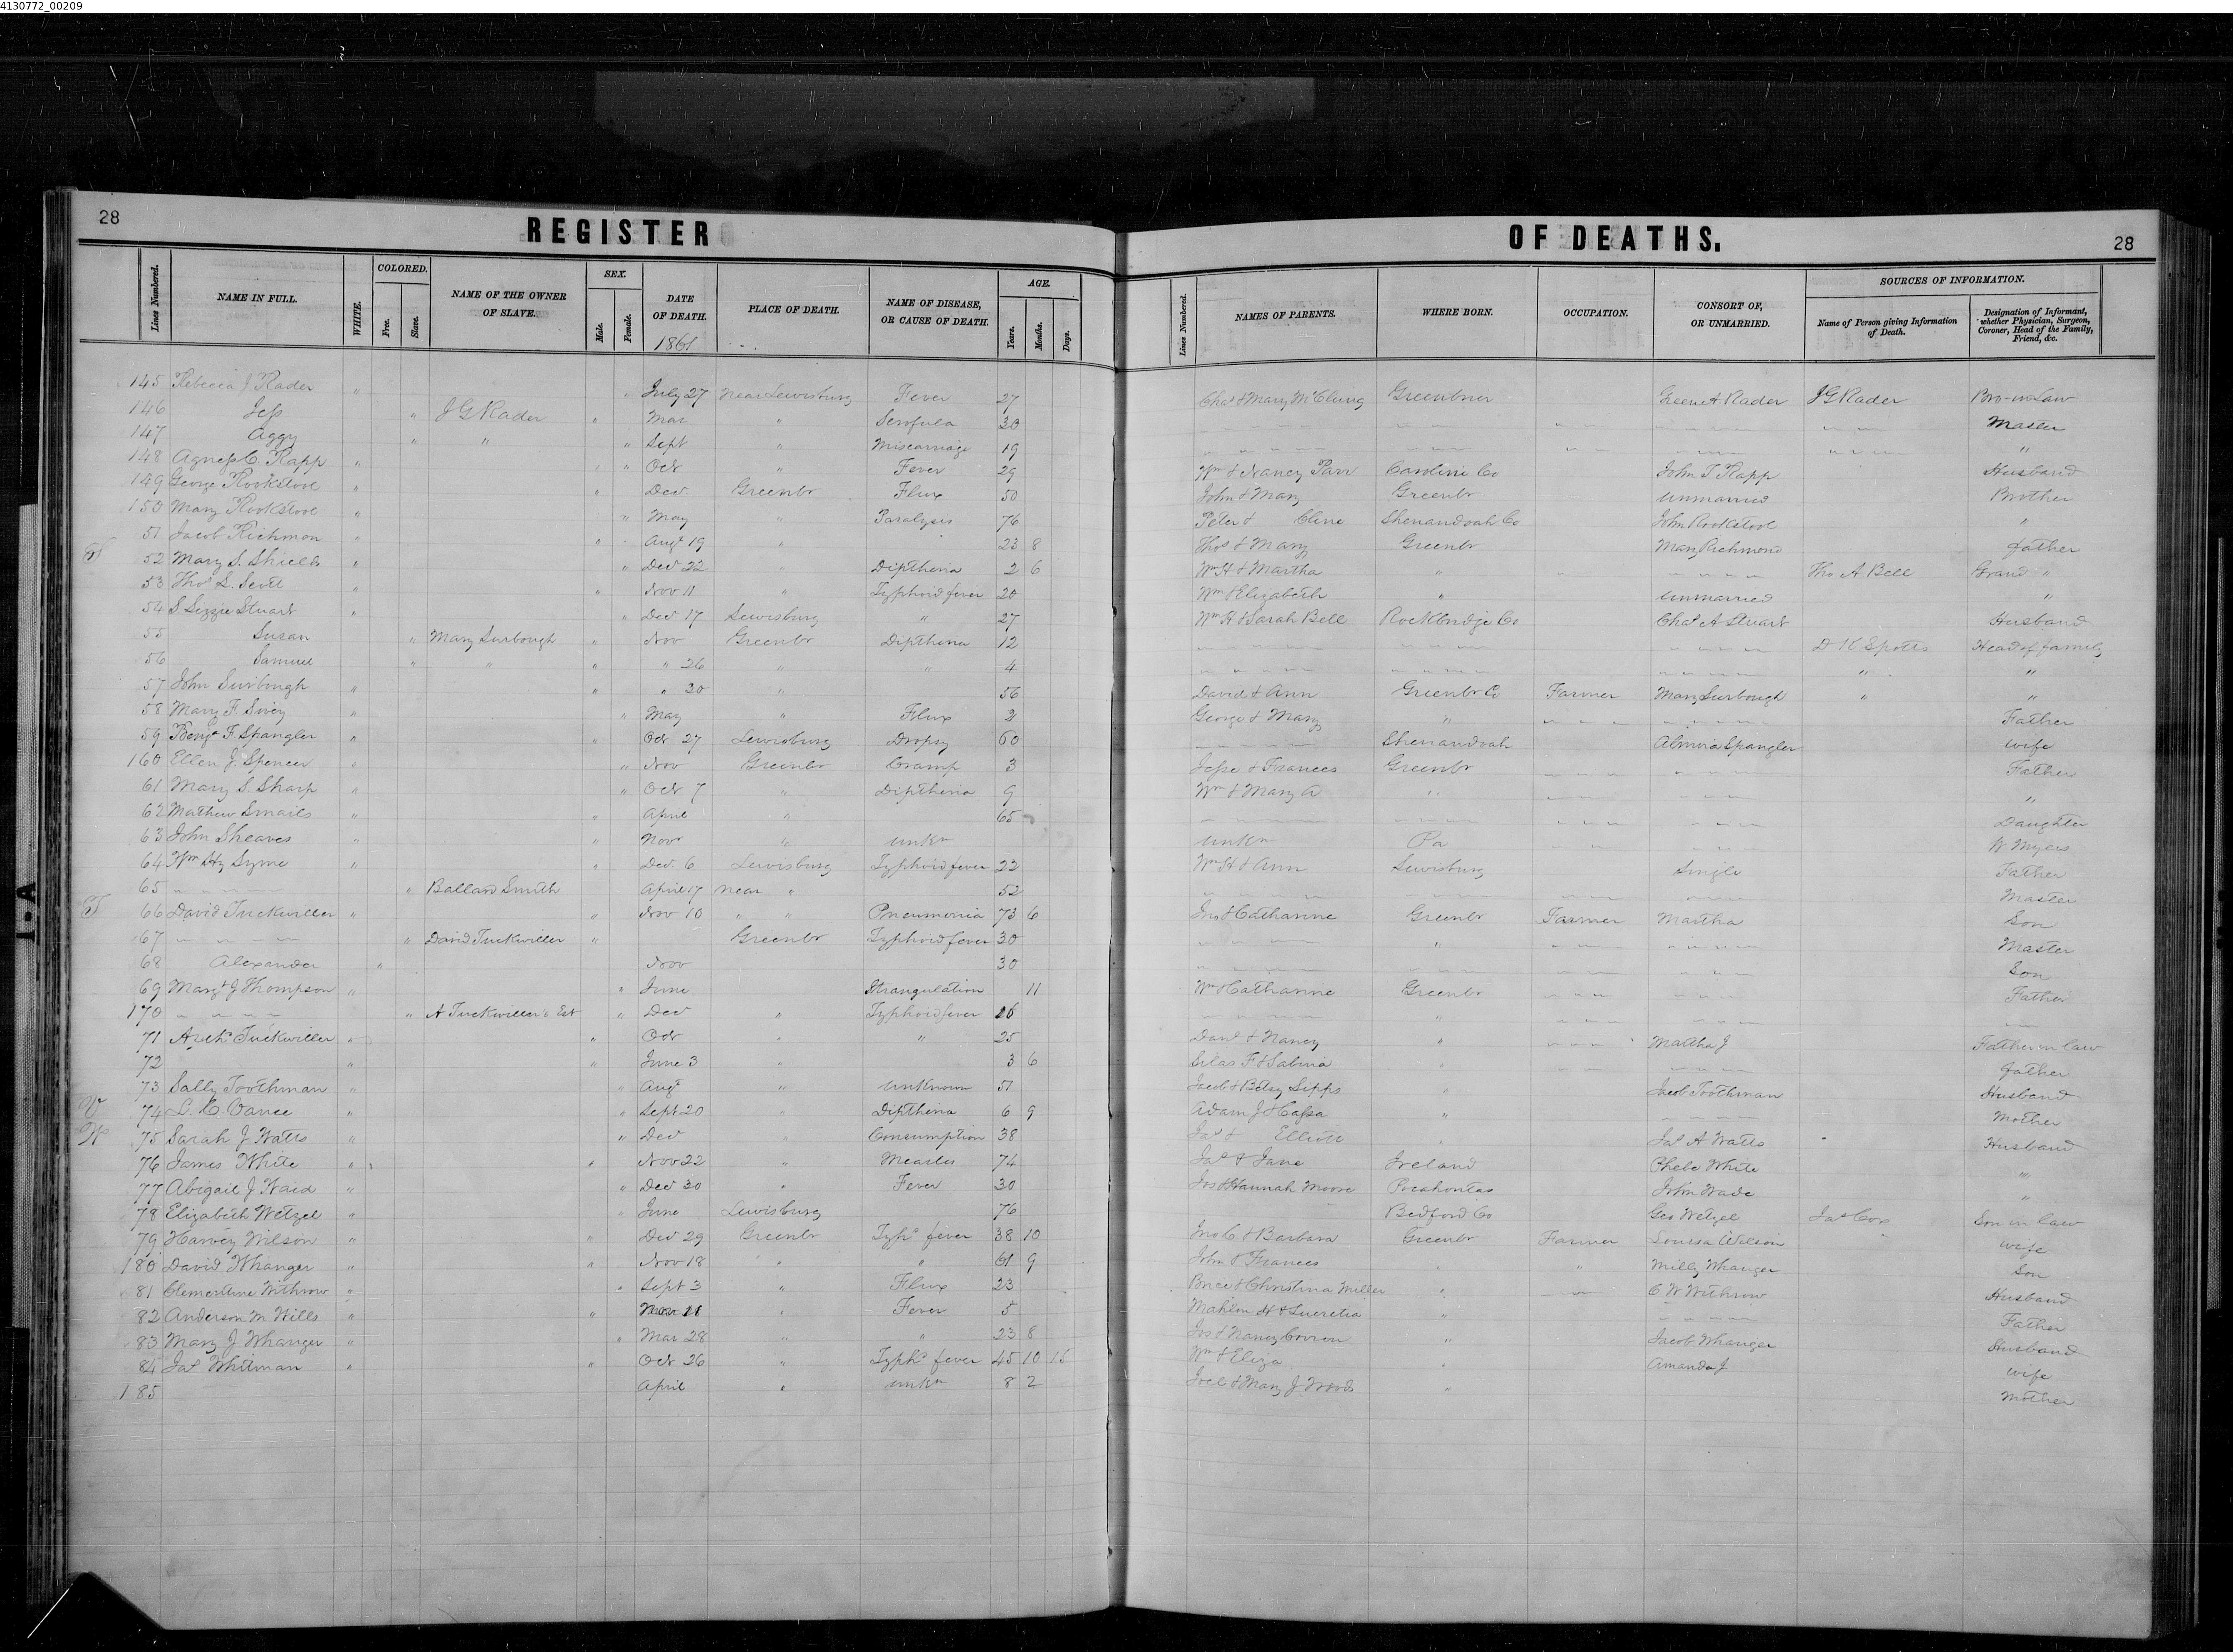 4130772_00209
28 REGISTER OF DEATHS. 28
Lines Numbered. NAME IN FULL. WHITE. COLORED. Free. Slave. NAME OF THE OWNER OF SLAVE. SEX. Male. Female. DATE OF DEATH. 1861 PLACE OF DEATH. NAME OF DISEASE, OR CAUSE OF DEATH. AGE. Years. Months. Days. Lines Numbered. NAMES OF PARENTS. WHERE BORN. OCCUPATION. CONSORT OF, OR UNMARRIED. SOURCES OF INFORMATION. Name of Person giving Information of Death. Designation of Informant, whether Physician, Surgeon, Coroner, Head of the Family, Friend, &c.
145 Rebecca J Rader " " July 27 Near Lewisburg Fever 27 Chas & Mary McClung Greenbrier Greene A Rader J G Rader Bro-in-Law
146 Jess " J G Rader " Mar " Scrofula 30 Master
147 Aggy " " " Sept " Miscarriage 19 "
148 Agness C. Rapp " " Oct " Fever 29 Wm & Nancy Parr Caroline Co John T Rapp Husband
149 George Rookstool " " Dec Greenbr Flux 50 John & Mary Greenbr Unmarried Brother
150 Mary Rookstool " " May " Paralysis 76 Peter & Cline Shenandoah Co John Rookstool "
51 Jacob Richmon " " Augt 19 " 23 8 Thos & Mary Greenbr Mary Richmond father
S 52 Mary S. Shields " " Dec 22 " Diptheria 2 6 Wm H & Martha " Tho A Bell Grand "
53 Thos L. Scott " " Nov 11 " Typhoid fever 20 Wm & Elizabeth " Unmarried "
54 S Lizzie Stuart " " Dec 17 Lewisburg " 27 Wm H & Sarah Bell Rockbridge Co Chas A Stuart Husband
55 Susan " Mary Surbough " Nov Greenbr Diptheria 12 D K Spotts Head of family
56 Samuel " " " " 26 " " 4 " "
57 John Surbough " " " 30 " 56 David & Ann Greenbr Co Farmer Mary Surbough " "
58 Mary F Sivey " " May " Flux 2 George & Mary " Father
59 Benja F. Spangler " " Oct 27 Lewisburg Dropsy 60 Shenandoah Almira Spangler wife
160 Ellen J. Spencer " " Nov Greenbr Cramp 3 Jesse & Frances Greenbr Father
61 Mary S. Sharp " " Oct 7 " Diptheria 9 Wm & Mary A " "
62 Mathew Smails " " April " 65 Daughter
63 John Sheaves " " Novr " unkn unkn Pa W Myers
64 Wm Hy Syme " " Dec. 6 Lewisburg Typhoid fever 22 Wm H & Ann Lewisburg Single Father
65 " Ballard Smith April 17 near " 52 Master
T 66 David Tuckwiller " " Nov 10 " " Pneumonia 73 6 Jno & Catharine Greenbr Farmer Martha Son
67 " David Tuckwiller " Greenbr Typhoid fever 30 " Master
68 Alexander " Nov 30 Son
69 Margt J Thompson " " June Strangulation 11 Wm & Catharine Greenbr Father
170 " A Tuckwiller's Est " Dec " Typhoid fever 16 "
71 Archd Tuckwiller " " Oct " " 25 Danl & Nancy " Martha J Father in law
72 " " June 3 " 3 6 Silas F & Sabina " father
73 Sally Toothman " " Augt " Unknown 51 Jacob & Betsy Sipps " Jacob Toothman Husband
V 74 L. C. Vance " " Sept 20 " Diptheria 6 9 Adam J & Cassa " Mother
W 75 Sarah J Watts " " Dec " Consumption 38 Jas & Elliott " Jas A Watts Husband
76 James White " " Nov 22 " Measles 74 Jas & Jane Ireland Phebe White "
77 Abigail J Waid " " Dec 30 " Fever 30 Jos & Hannah Moore Pocahontas John Wade "
78 Elizabeth Wetzel " " June Lewisburg 76 Bedford Co Geo Wetzel Jas Cox Son in law
79 Harvey Wilson " " Dec 29 Greenbr Typhd fever 38 10 Jno C & Barbara Greenbr Farmer Louisa Wilson wife
180 David Whanger " " Nov 18 " " 61 9 John & Frances " " Milly Whanger Son
81 Clementine Withrow " " Sept 3 " Flux 23 Brice & Christina Miller " C W Withrow Husband
82 Anderson M Wills " " Nov 11 " Fever 5 Mahlon H & Lucretia " Father
83 Mary J Whanger " " Mar 28 " " 23 8 Jos & Nancy Corron " Jacob Whanger Husband
84 Jas Whitman " " Oct 26 " Typhd fever 45 10 15 Wm & Eliza " Amanda J wife
185 April " unkn 8 2 Joel & Mary J Woods " Mother